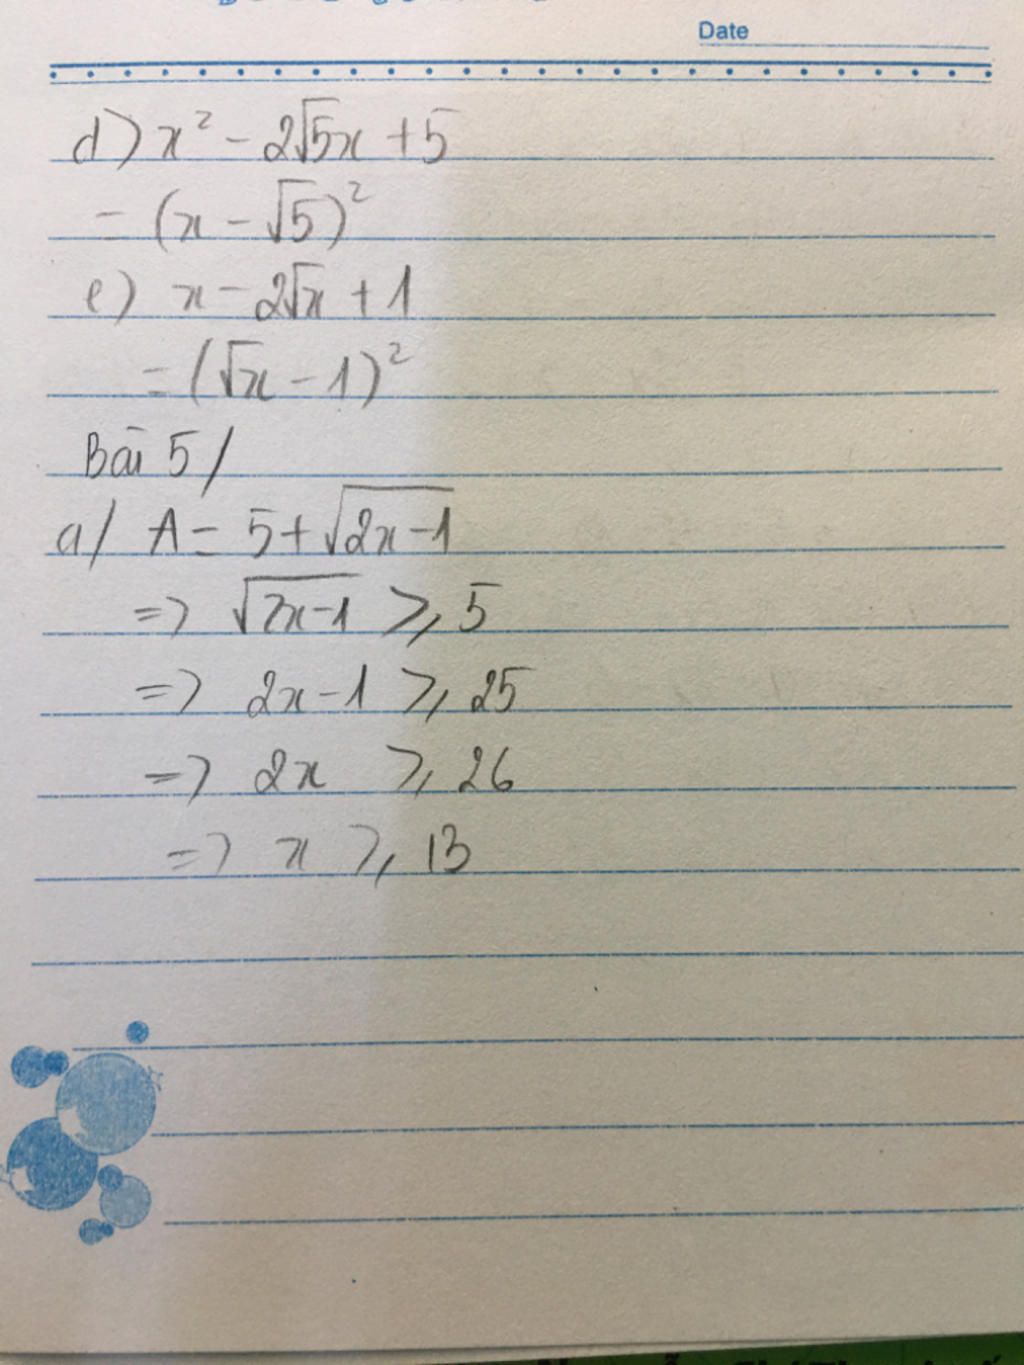 Date
d) x² - 2√5x + 5
= (x - √5)²
e) x - 2√x + 1
= (√x - 1)²
Bài 5/
a/ A = 5 + √2x-1
=> √2x-1 ⩾ 5
=> 2x - 1 ⩾ 25
=> 2x ⩾ 26
=> x ⩾ 13